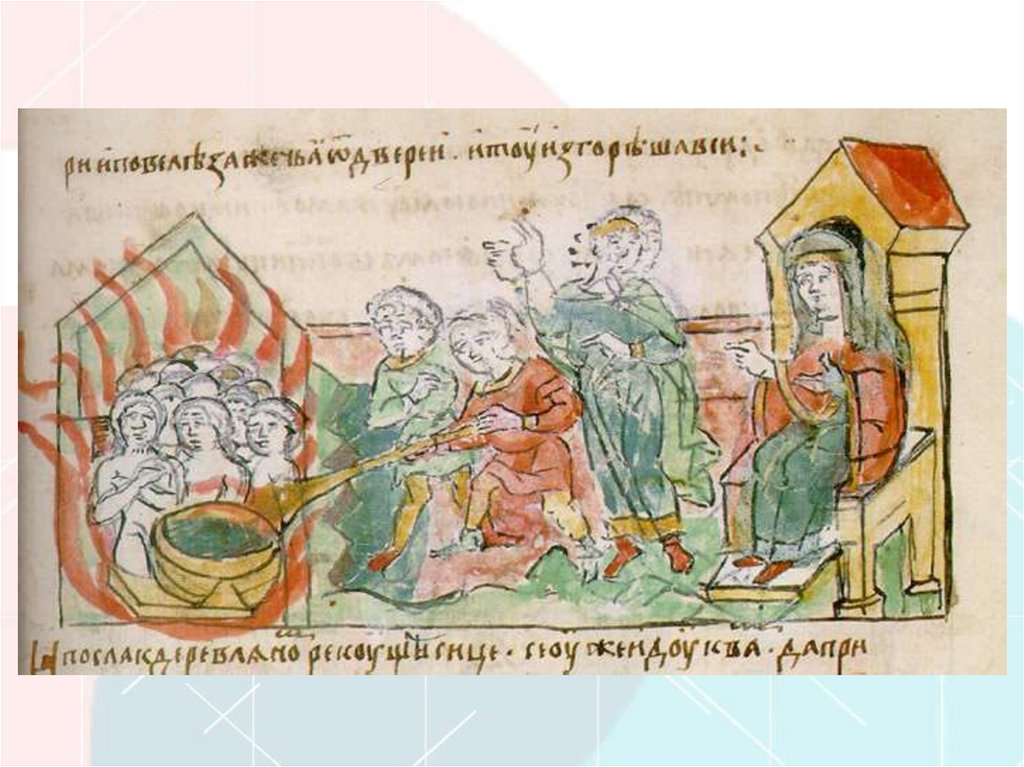 ри и повелѣ зажечь ꙗ ѿ двереи · и тоу изгорѣша вси :·
И посла к деревлѧно рекоущи сице · се оуже идоу к ва · да при